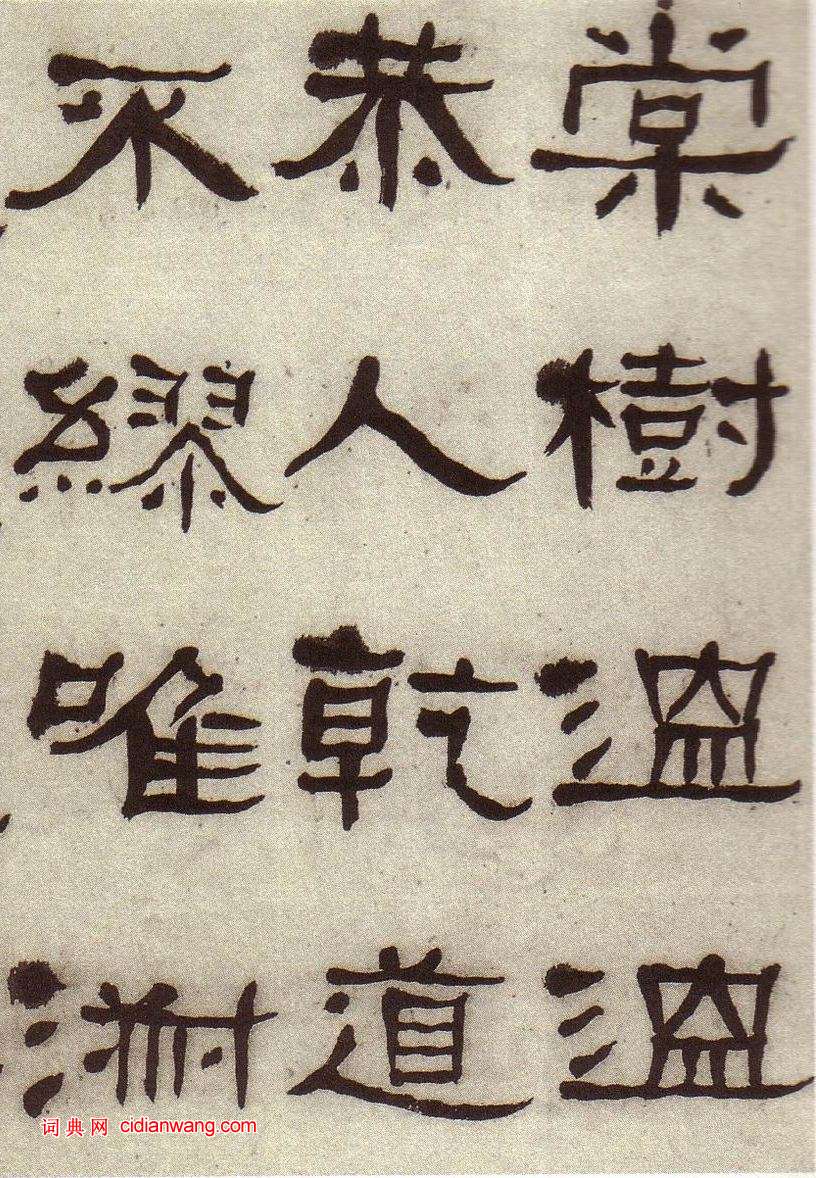 棠樹溫溫
恭人乾道
不繆唯淑
词典网 cidianwang.com